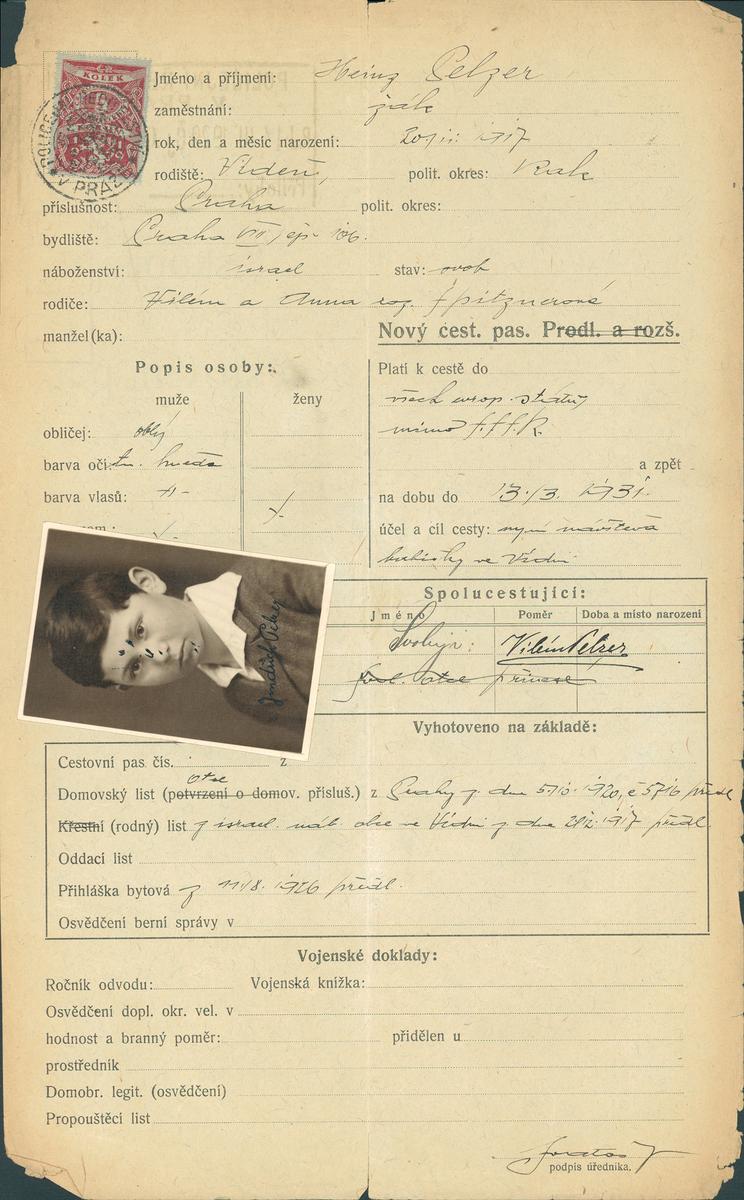 KOLEK
V PRAZE
Jméno a příjmení: Heinz Pelzer
zaměstnání: žák
rok, den a měsíc narození: 1917
rodiště: Vídeň, polit. okres: Rak
příslušnost: Praha polit. okres:
bydliště: Praha VII, čp. 106.
náboženství: israel stav: svob
rodiče: Vilém a Anna roz. Spitznerová
manžel(ka): Nový cest. pas. Prodl. a rozš.
Popis osoby:
muže ženy
obličej: oblý
barva očí: tm. hnědé
barva vlasů: -"-
Platí k cestě do
všech evrop. států
mimo S.S.S.R.
a zpět
na dobu do 13./3. 1931.
účel a cíl cesty: nyní návštěva
babičky ve Vídni
Jindřich Pelzer
Spolucestující:
Jméno Poměr Doba a místo narození
Svoluji: Vilém Pelzer
otce
Vyhotoveno na základě:
Cestovní pas čís. z
otce
Domovský list (potvrzení o domov. přísluš.) z Prahy z dne 1920, č 5716 předl
Křestní (rodný) list z israel. náb. obce ve Vídni z dne 1917 předl.
Oddací list
Přihláška bytová z 11/8. 1926 předl.
Osvědčení berní správy v
Vojenské doklady:
Ročník odvodu: Vojenská knížka:
Osvědčení dopl. okr. vel. v
hodnost a branný poměr: přidělen u
prostředník
Domobr. legit. (osvědčení)
Propouštěcí list
podpis úředníka.